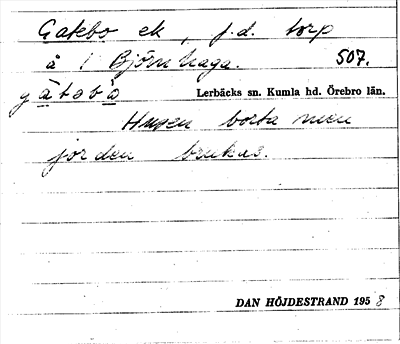 Gatebo ek, f.d. torp
å 1 Björnhaga. 507.
gàtabò Lerbäcks sn. Kumla hd. Örebro län.
Husen borta men
jorden brukas.
DAN HÖJDESTRAND 1958